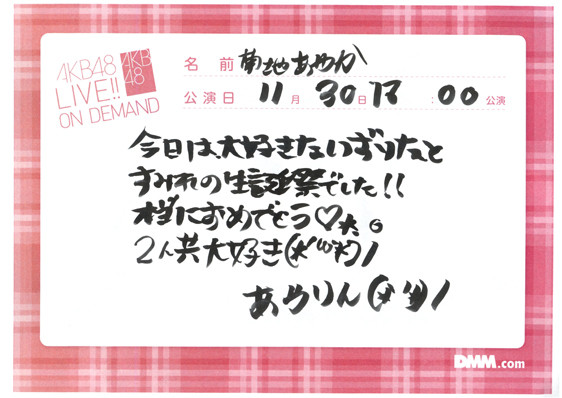 AKB48
LIVE!!
ON DEMAND
AKB
48
名 前 菊地あやか
公演日 11月30日 17:00公演
今日は、大好きないずりなと
すみれの生誕祭でした!!
本当におめでとう♡
2人共大好き
あやりん
DMM.com